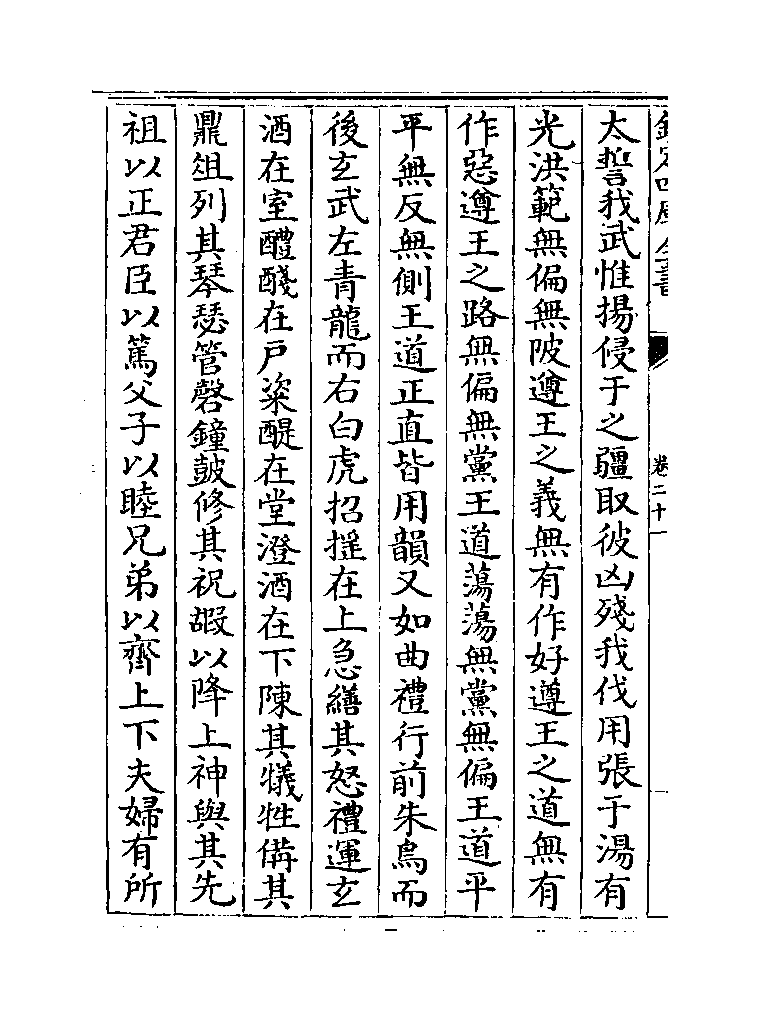 欽定四庫全書
卷二十一
太誓我武惟揚侵于之疆取彼凶殘我伐用張于湯有
光洪範無偏無陂遵王之義無有作好遵王之道無有
作惡遵王之路無偏無黨王道蕩蕩無黨無偏王道平
平無反無側王道正直皆用韻又如曲禮行前朱鳥而
後玄武左青龍而右白虎招揺在上急繕其怒禮運玄
酒在室醴醆在戶粢醍在堂澄酒在下陳其犧牲備其
鼎俎列其琴瑟管磬鐘鼓修其祝嘏以降上神與其先
祖以正君臣以篤父子以睦兄弟以齊上下夫婦有所